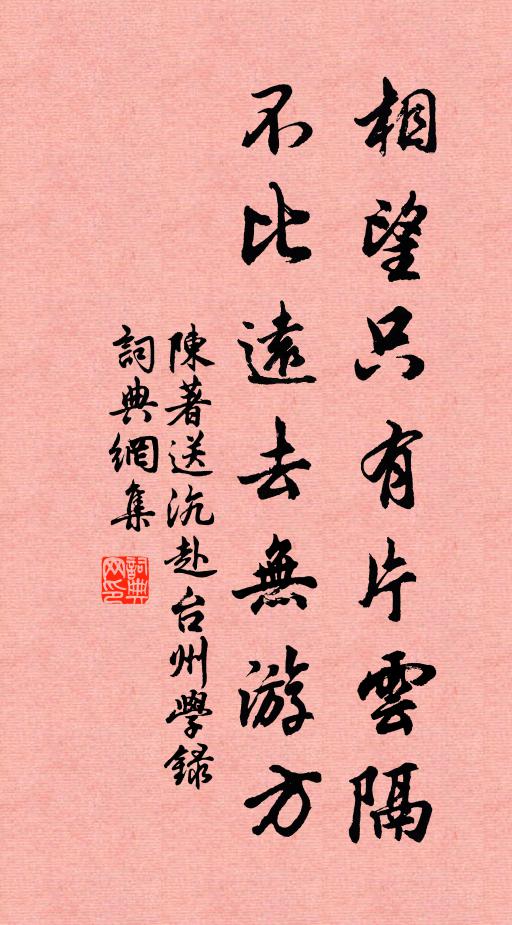 相望只有片雲隔
不比遠去無游方
陳著送沆赴台州學録
詞典網集
詞典网印